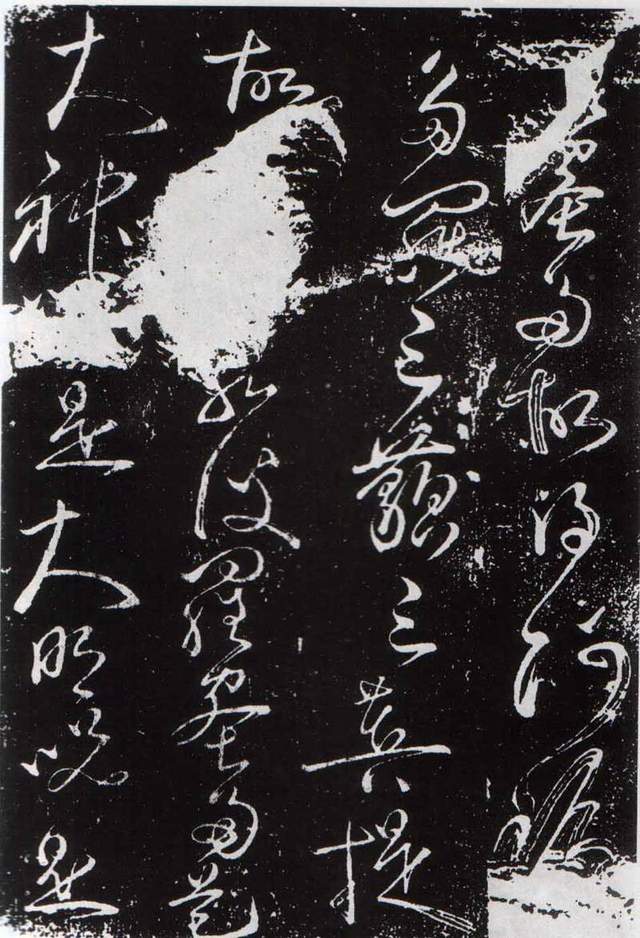 蜜多故得阿耨
多羅三藐三菩提
故若波羅蜜多是
大神是大明呪是